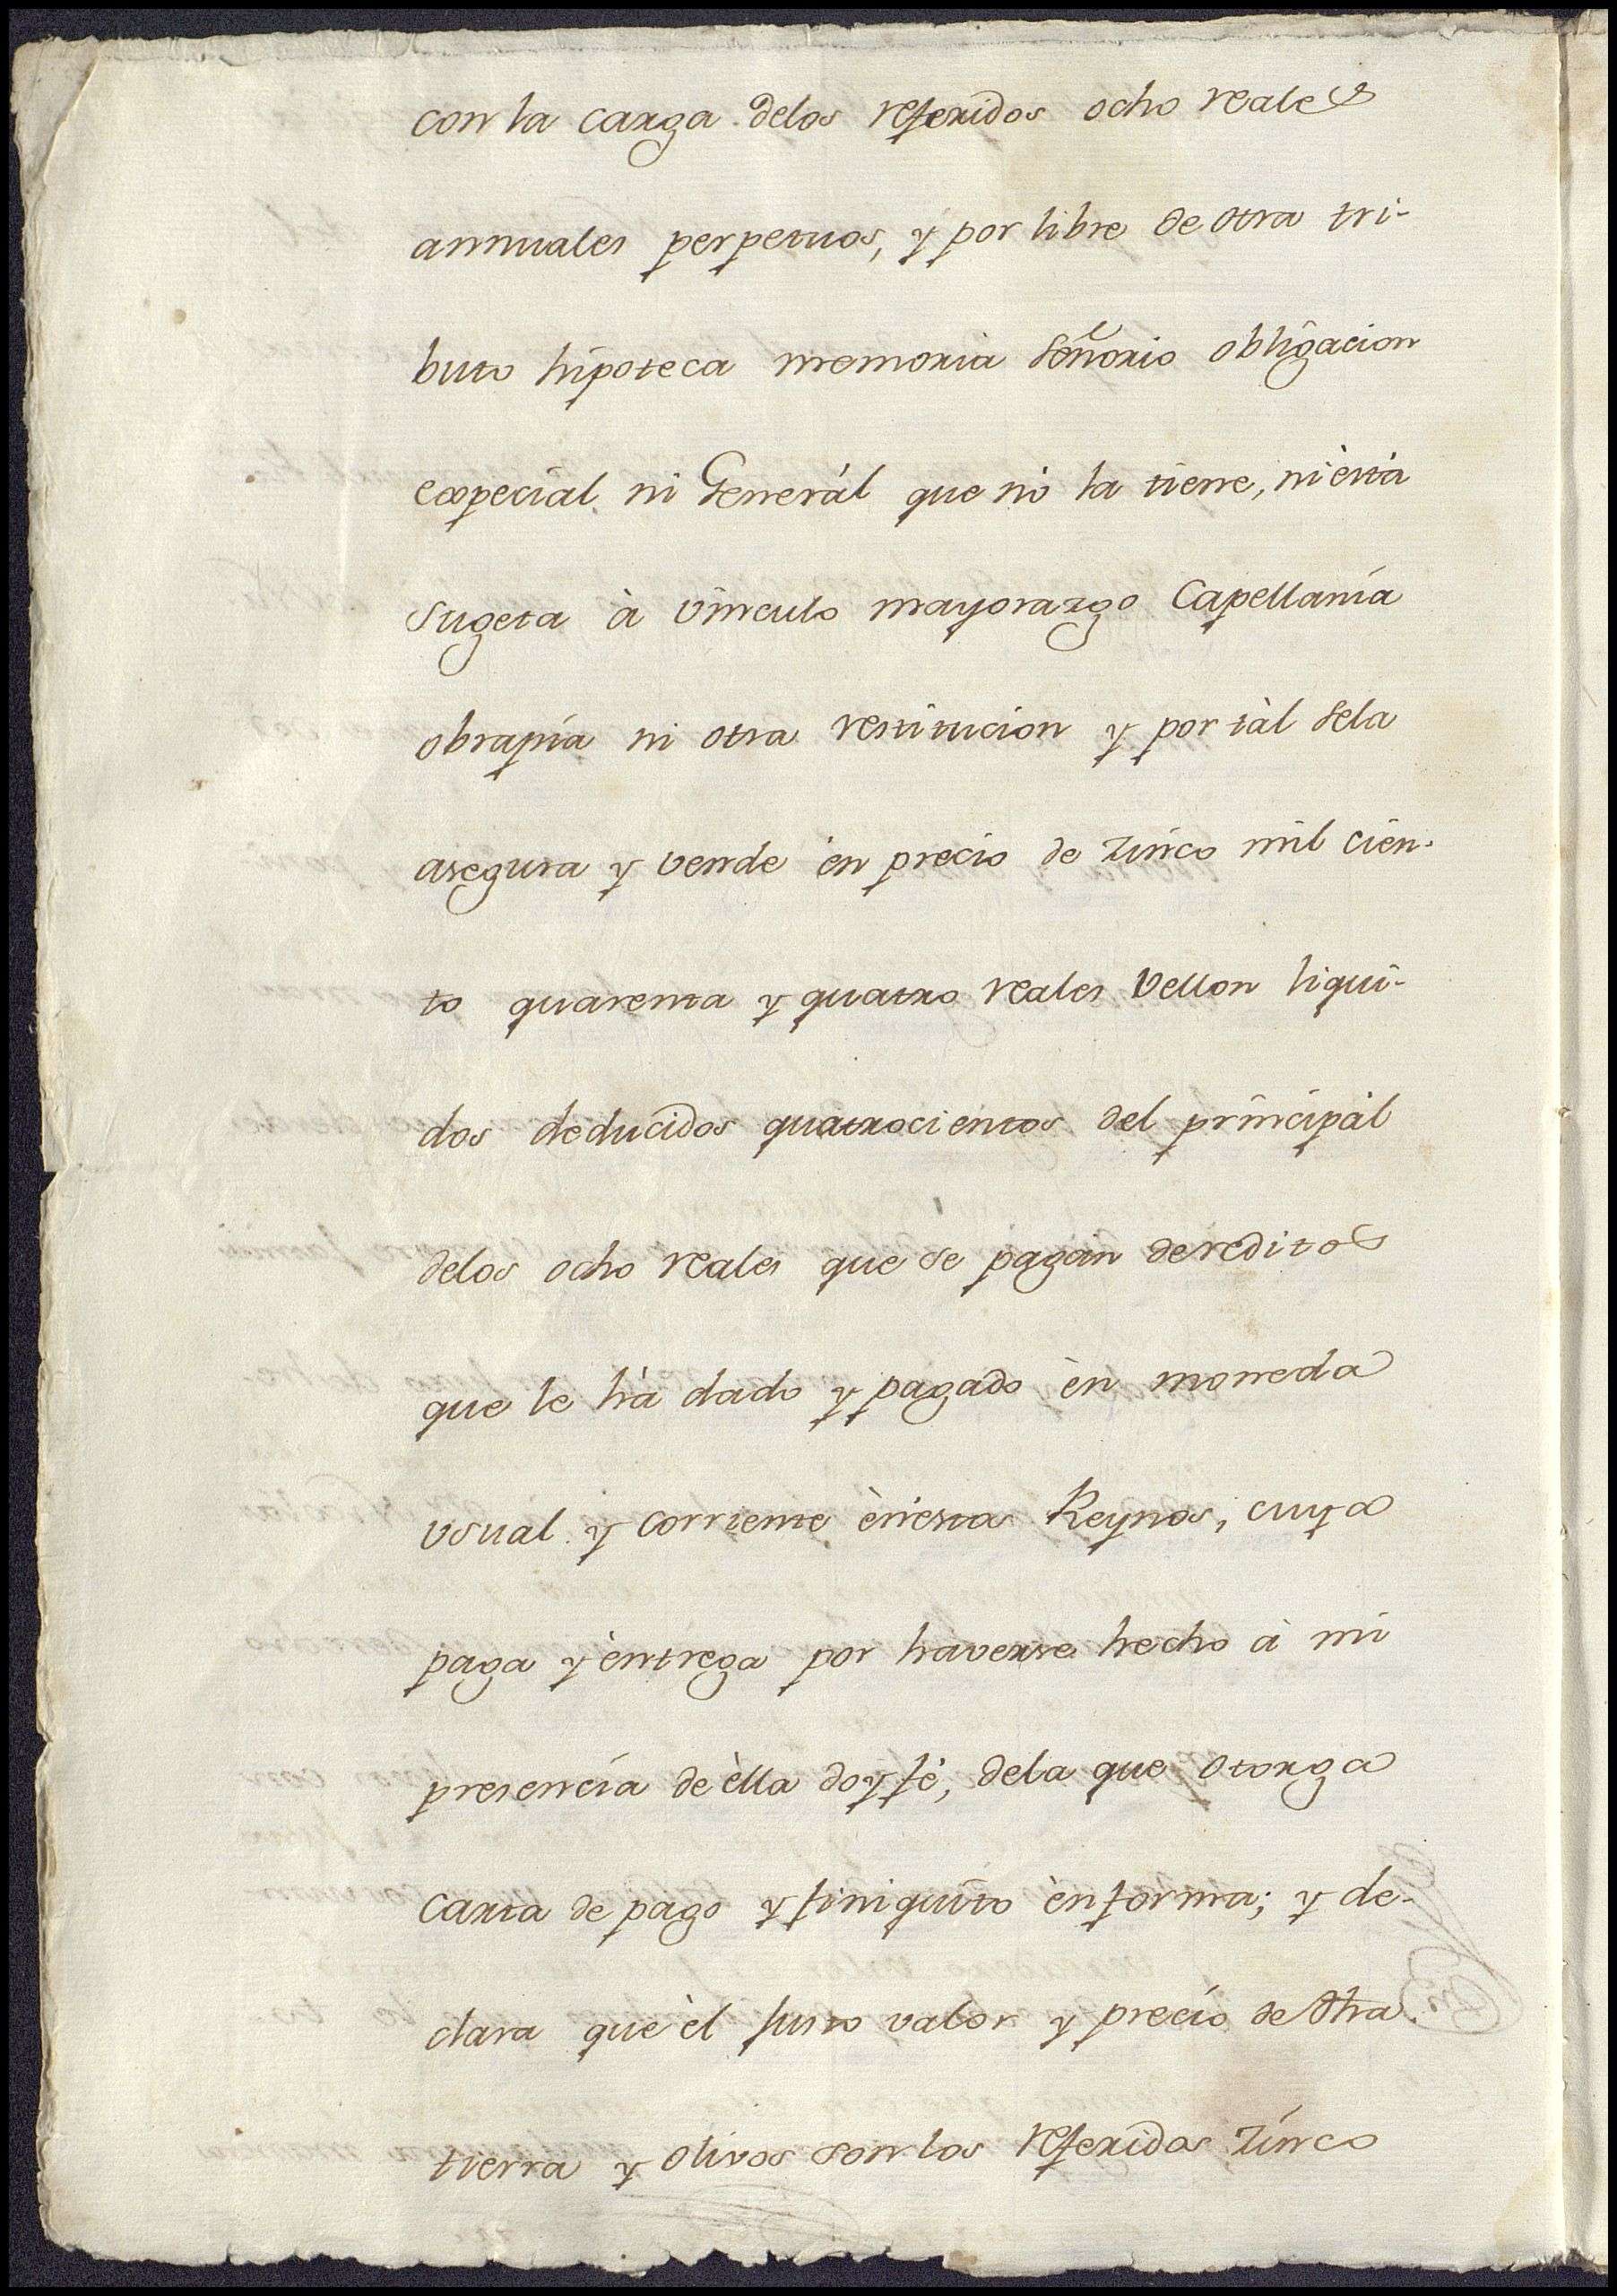 con la carga delos referidos ocho reales
annuales perpetuos, y por libre de otra tri-
buto hipoteca memoria señorio obligacion
especial ni Generál que nó la tiene, ni èstá
sugeta à vinculo mayorazgo Capellanía
obrapía ni otra restitucion y por tàl sela
asegura y vende èn precio de zinco mil cien-
to quarenta y quatro reales vellon liqui-
dos deducidos quatrocientos del principàl
delos ocho reales que se pagan de reditos
que le hà dado y pagado èn moneda
usual y corriente ènestos Reynos, cuya
paga y èntrega por haverse hecho à mi
presencía de èlla doy fè, dela que otorga
carta de pago y finiquito èn forma; y de-
clara que èl justo valor y precio de dha
tierra y olivos son los referidos zinco